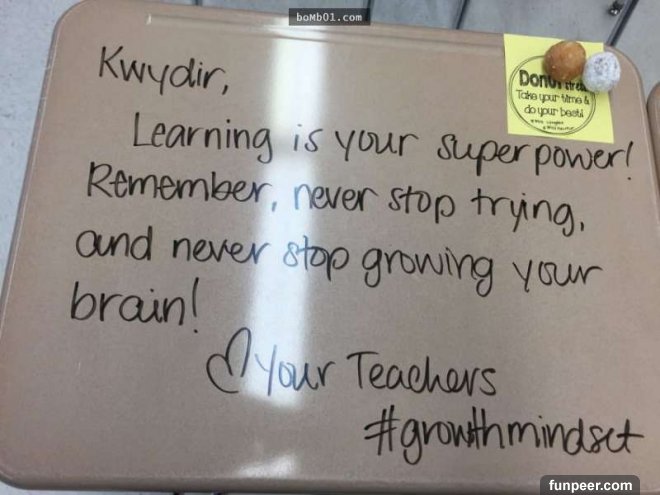 boMb01.com
Kwydir,
Learning is your superpower!
Remember, never stop trying,
and never stop growing your
brain!
♡ Your Teachers
#growthmindset
Take your time &
do your best!
funpeer.com